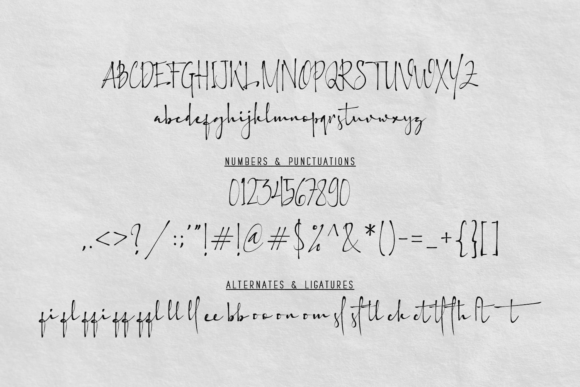 ABCDEFGHIJKLMNOPQRSTUVWXYZ
abcdefghijklmnopqrstuvwxyz
NUMBERS & PUNCTUATIONS
01234567890
,.<>?/:;'"!#!@#$%^&*()-=_+{}[]
ALTERNATES & LIGATURES
fi fl ffi ff ffl ll ll ee bb oo on om sl st ll ck ct tl th